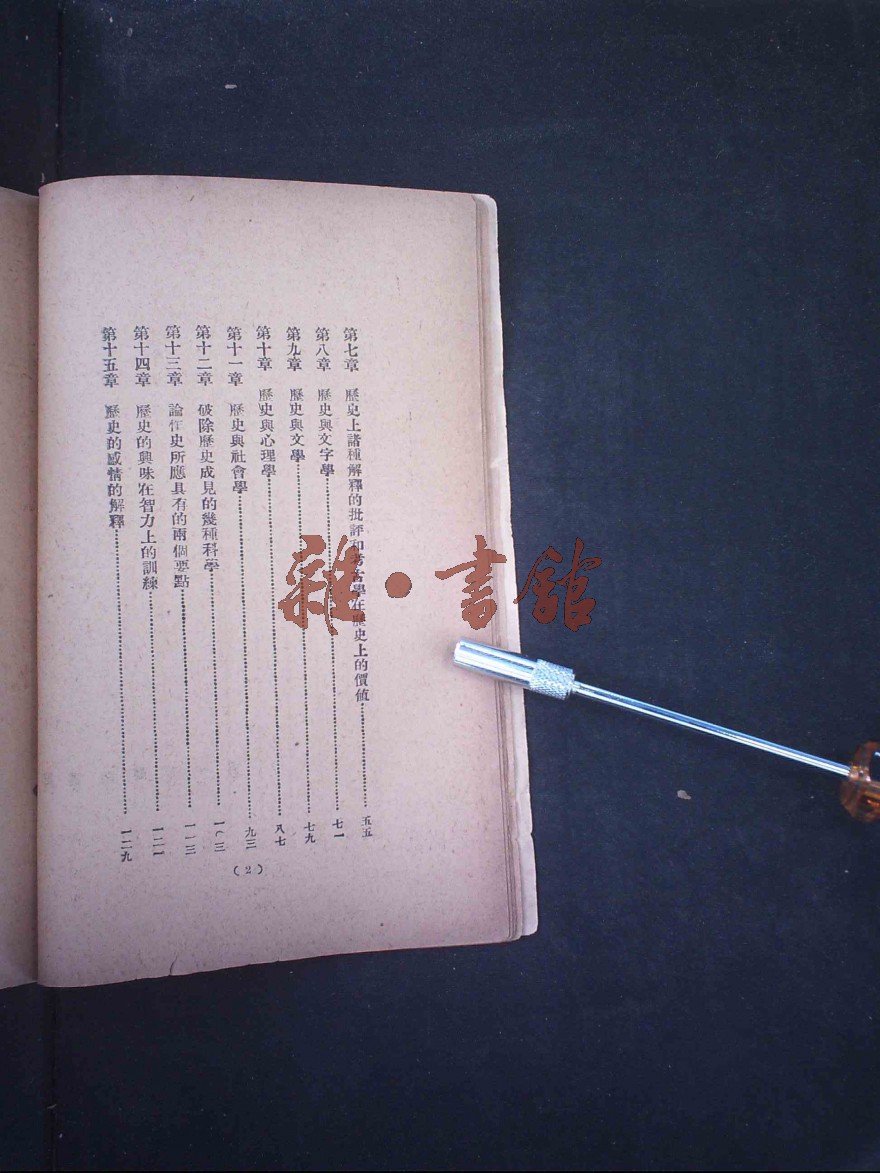 第七章 歷史上諸種解釋的批評和考古學在歷史上的價値 五五
第八章 歷史與文字學 七一
第九章 歷史與文學 七九
第十章 歷史與心理學 八七
第十一章 歷史與社會學 九三
第十二章 破除歷史成見的幾種科學 一〇三
第十三章 論作史所應具有的兩個要點 一一三
第十四章 歷史的興味在智力上的訓練 一二一
第十五章 歷史的感情的解釋 一二九
(2)
雜·書館